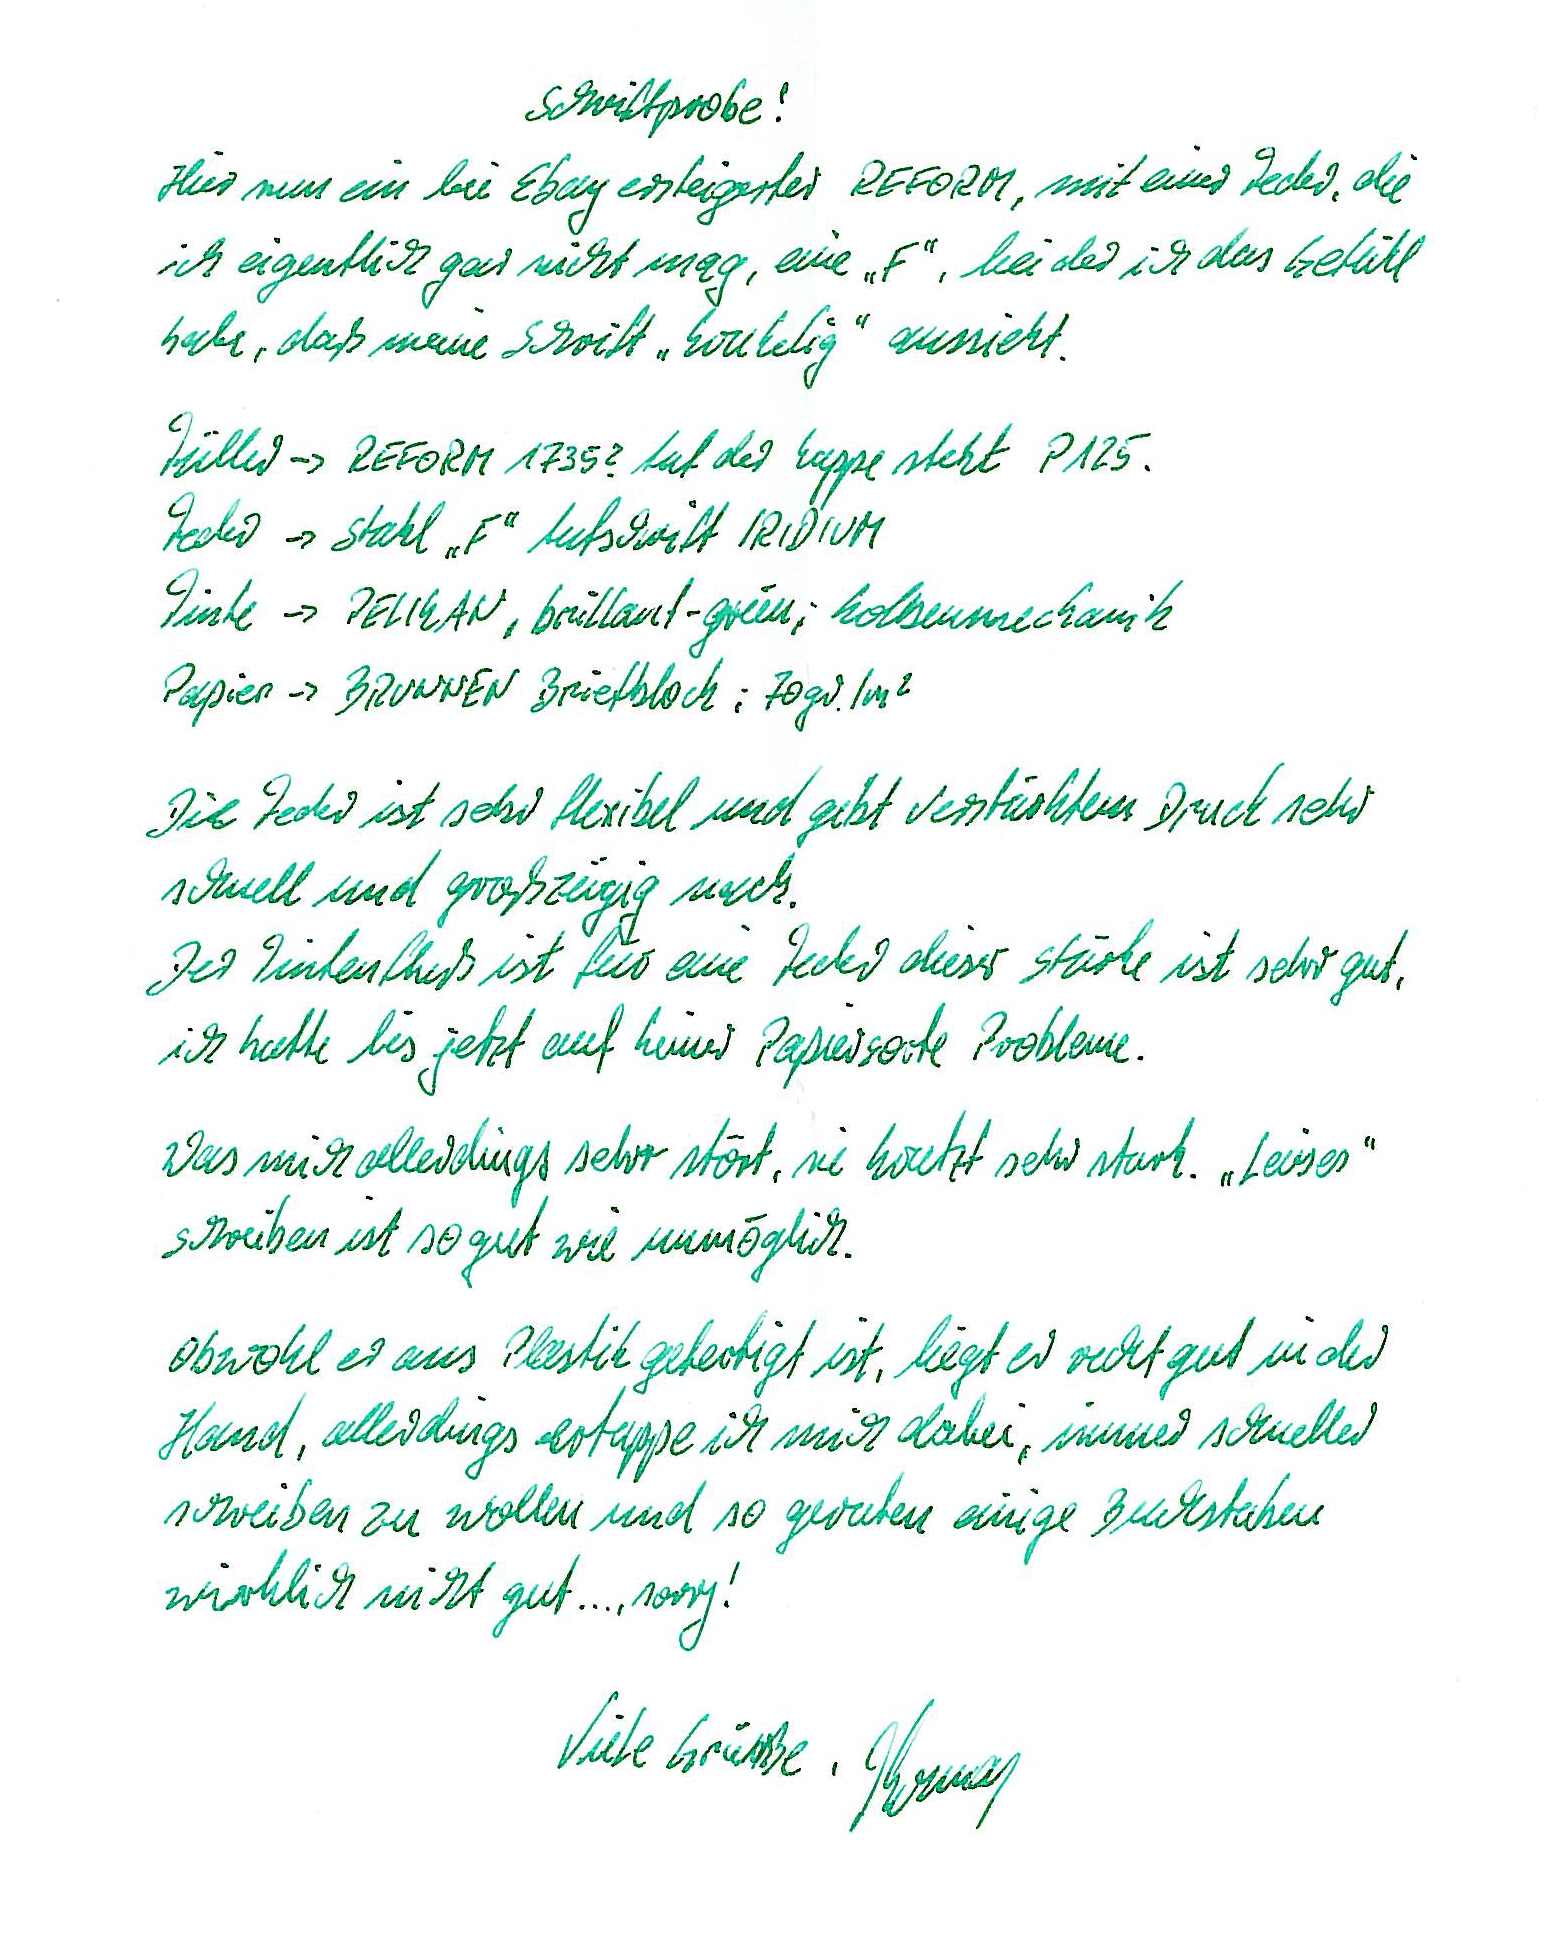 Schriftprobe!
Hier nun ein bei Ebay ersteigerter REFORM, mit einer Feder, die
ich eigentlich gar nicht mag, eine „F“, bei der ich das Gefühl
habe, daß meine Schrift „krakelig“ aussieht.
Füller -> REFORM 1735? Auf der Kappe steht P125.
Feder -> Stahl „F“ Aufschrift IRIDIUM
Tinte -> PELIKAN, brillant-grün; Kolbenmechanik
Papier -> BRUNNEN Briefblock; 70gr./m²
Die Feder ist sehr flexibel und gibt verstärktem Druck sehr
schnell und großzügig nach.
Der Tintenfluß ist für eine Feder dieser Stärke ist sehr gut,
ich hatte bis jetzt auf keiner Papiersorte Probleme.
Was mich allerdings sehr stört, sie kratzt sehr stark. „Leises“
schreiben ist so gut wie unmöglich.
Obwohl er aus Plastik gefertigt ist, liegt er recht gut in der
Hand, allerdings ertappe ich mich dabei, immer schneller
schreiben zu wollen und so geraten einige Buchstaben
wirklich nicht gut..., sorry!
Viele Grüße, Thomas